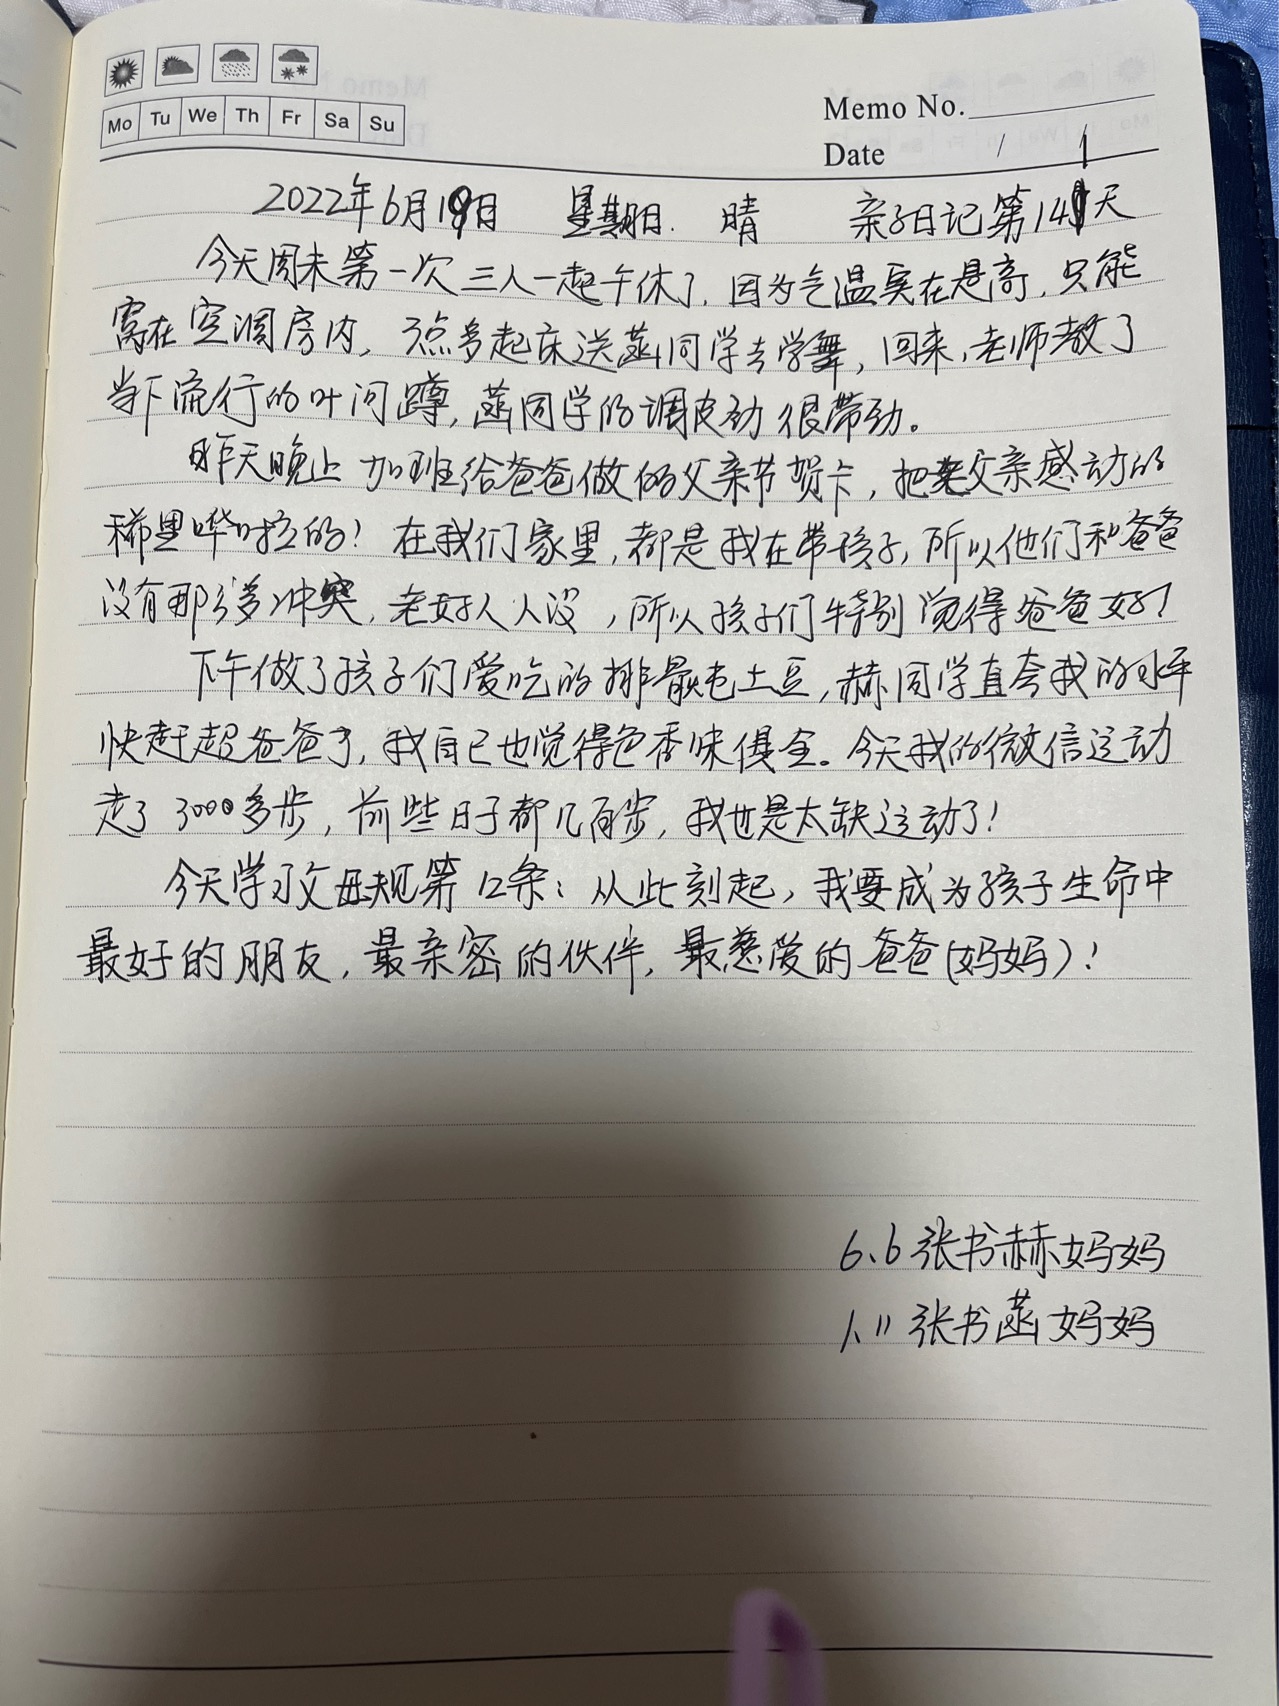 Mo Tu We Th Fr Sa Su
Memo No.
Date / /
2022年6月19日 星期日. 晴 亲子日记第141天
今天周末第一次三人一起午休了,因为气温实在是高,只能
窝在空调房内,3点多起床送菡同学去学舞,回来,老师教了
当下流行的叶问蹲,菡同学的调皮劲很带劲。
昨天晚上加班给爸爸做的父亲节贺卡,把老父亲感动的
稀里哗啦的!在我们家里,都是我在带孩子,所以他们和爸爸
没有那么多冲突,老好人人设,所以孩子们特别觉得爸爸好!
下午做了孩子们爱吃的排骨炖土豆,赫同学直夸我的水平
快赶超爸爸了,我自己也觉得色香味俱全。今天我的微信运动
走了3000多步,前些日子都几百步,我也是太缺运动了!
今天学习父母规第12条:从此刻起,我要成为孩子生命中
最好的朋友,最亲密的伙伴,最慈爱的爸爸(妈妈)!
6.6张书赫妈妈
1.11张书菡妈妈